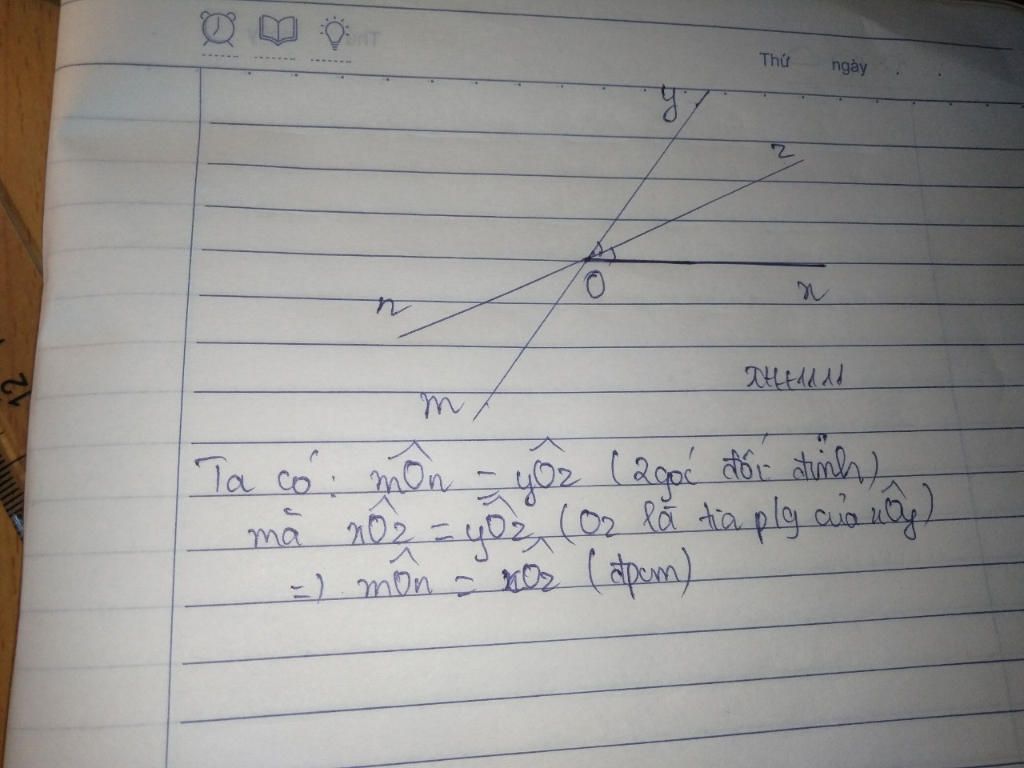 Thứ ngày . .
y
z
O
n
x
m
Ta có: mÔn = yÔz (2 góc đối đỉnh)
mà xÔz = yÔz (Oz là tia p/g của xÔy)
=) mÔn = xÔz (đpcm)
12